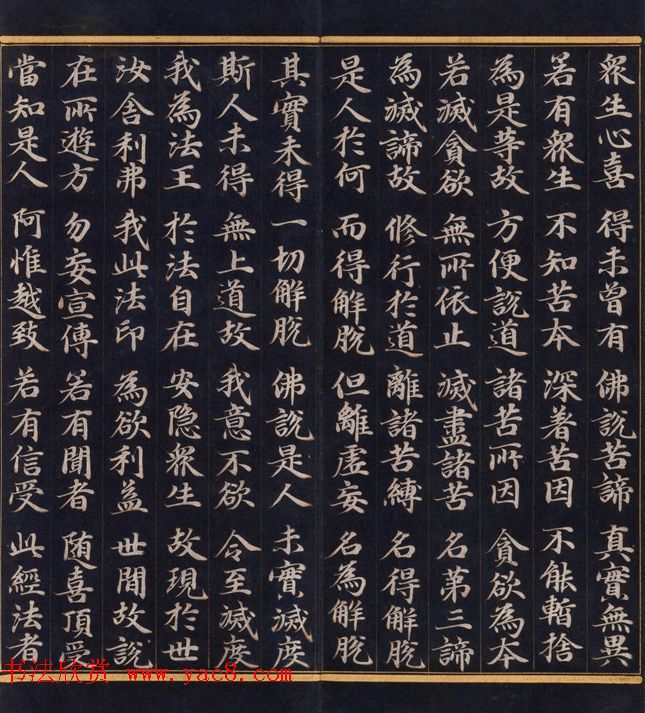 衆生心喜 得未曾有 佛説苦諦 真實無異
若有衆生 不知苦本 深著苦因 不能暫捨
為是等故 方便說道 諸苦所因 貪欲為本
若滅貪欲 無所依止 滅盡諸苦 名第三諦
為滅諦故 修行於道 離諸苦縛 名得解脫
是人於何 而得解脫 但離虛妄 名為解脫
其實未得 一切解脫 佛說是人 未實滅度
斯人未得 無上道故 我意不欲 令至滅度
我為法王 於法自在 安隱衆生 故現於世
汝舍利弗 我此法印 為欲利益 世間故說
在所遊方 勿妄宣傳 若有聞者 随喜頂受
當知是人 阿惟越致 若有信受 此經法者
书法欣赏 www.yac8.com